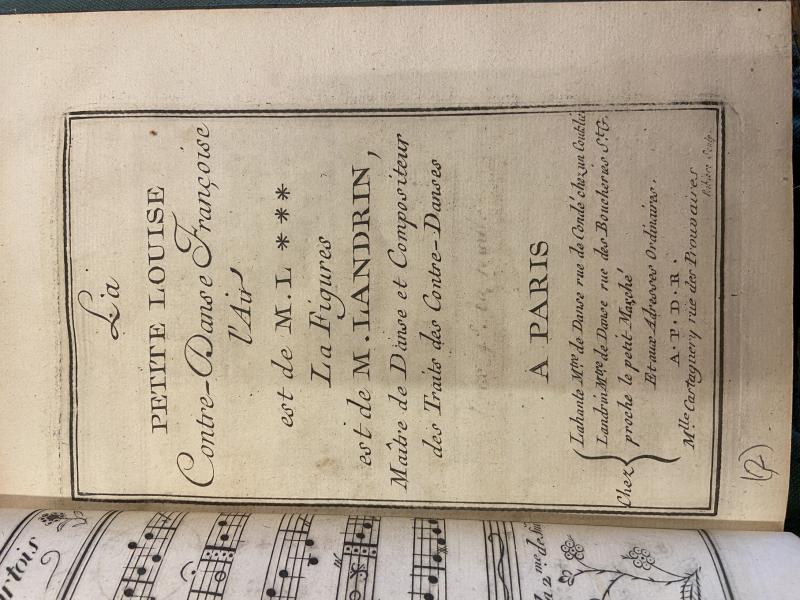 La
PETITE LOUISE
Contre-Danse Françoise
l'Air
est de M. L ***
La Figures
est de M. LANDRIN,
Maître de Danse et Compositeur
des Traits des Contre-Danses
À PARIS
Chez
Lahante Mtre de Danse rue de Condé chez un Coutelier
Landrin Mtre de Danse rue des Boucheries St. G.
proche le petit Marché
Et aux Adresses Ordinaires.
A. P. D. R.
Mlle Cartagnery rue des Prouvaires
Sculp.
(2)
2me de